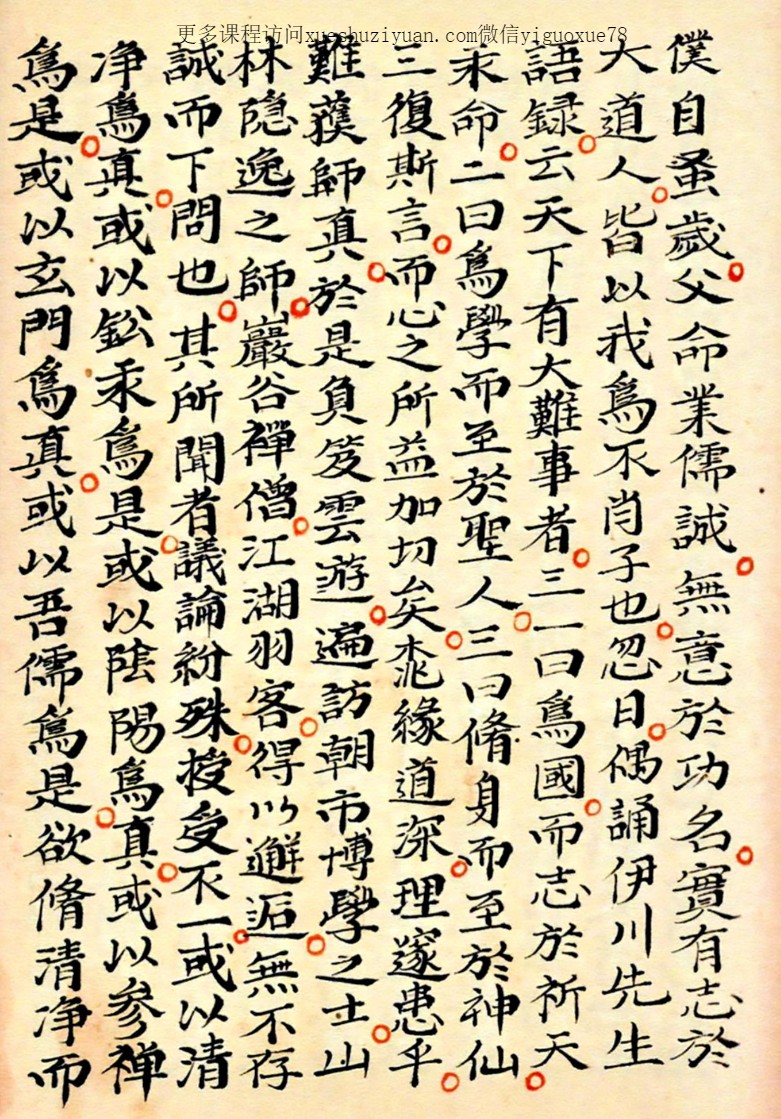 更多课程访问xueshuziyuan.com微信yiguoxue78
僕自蚤歲父命業儒誠無意於功名實有志於
大道人皆以我爲不肖子也忽日偶誦伊川先生
語録云天下有大難事者三一曰爲國而志於祈天
永命二曰爲學而至於聖人三曰脩身而至於神仙
三復斯言而心之所益加切矣柰緣道深理邃患乎
難蓂師真於是負笈雲遊遍訪朝市博學之士山
林隐逸之師巖谷禅僧江湖羽客得以邂逅無不存
誠而下問也其所聞者議論紛殊授受不一或以清
净爲真或以鈆汞爲是或以陰陽爲真或以参禅
爲是或以玄門爲真或以吾儒爲是欲脩清净而